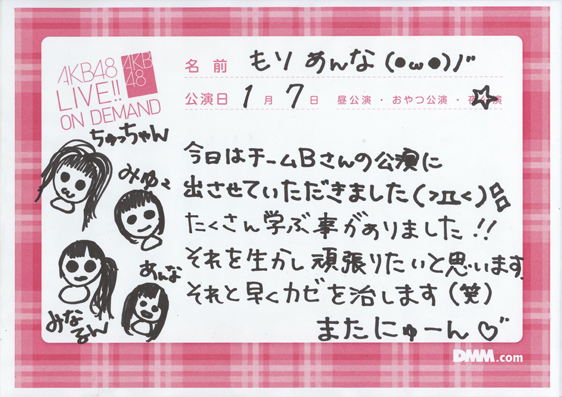 AKB48
LIVE!!
ON DEMAND
AKB
48
名前 もり あんな (●ω●)ノ"
公演日 1月 7日 昼公演・おやつ公演・夜公演
ちゅっちゃん
みゅぅ
あんな
みなるん
今日はチームBさんの公演に
出させていただきました(>Д<)
たくさん学ぶ事がありました!!
それを生かし頑張りたいと思います
それと早くカゼを治します(笑)
またにゅーん♡
DMM.com